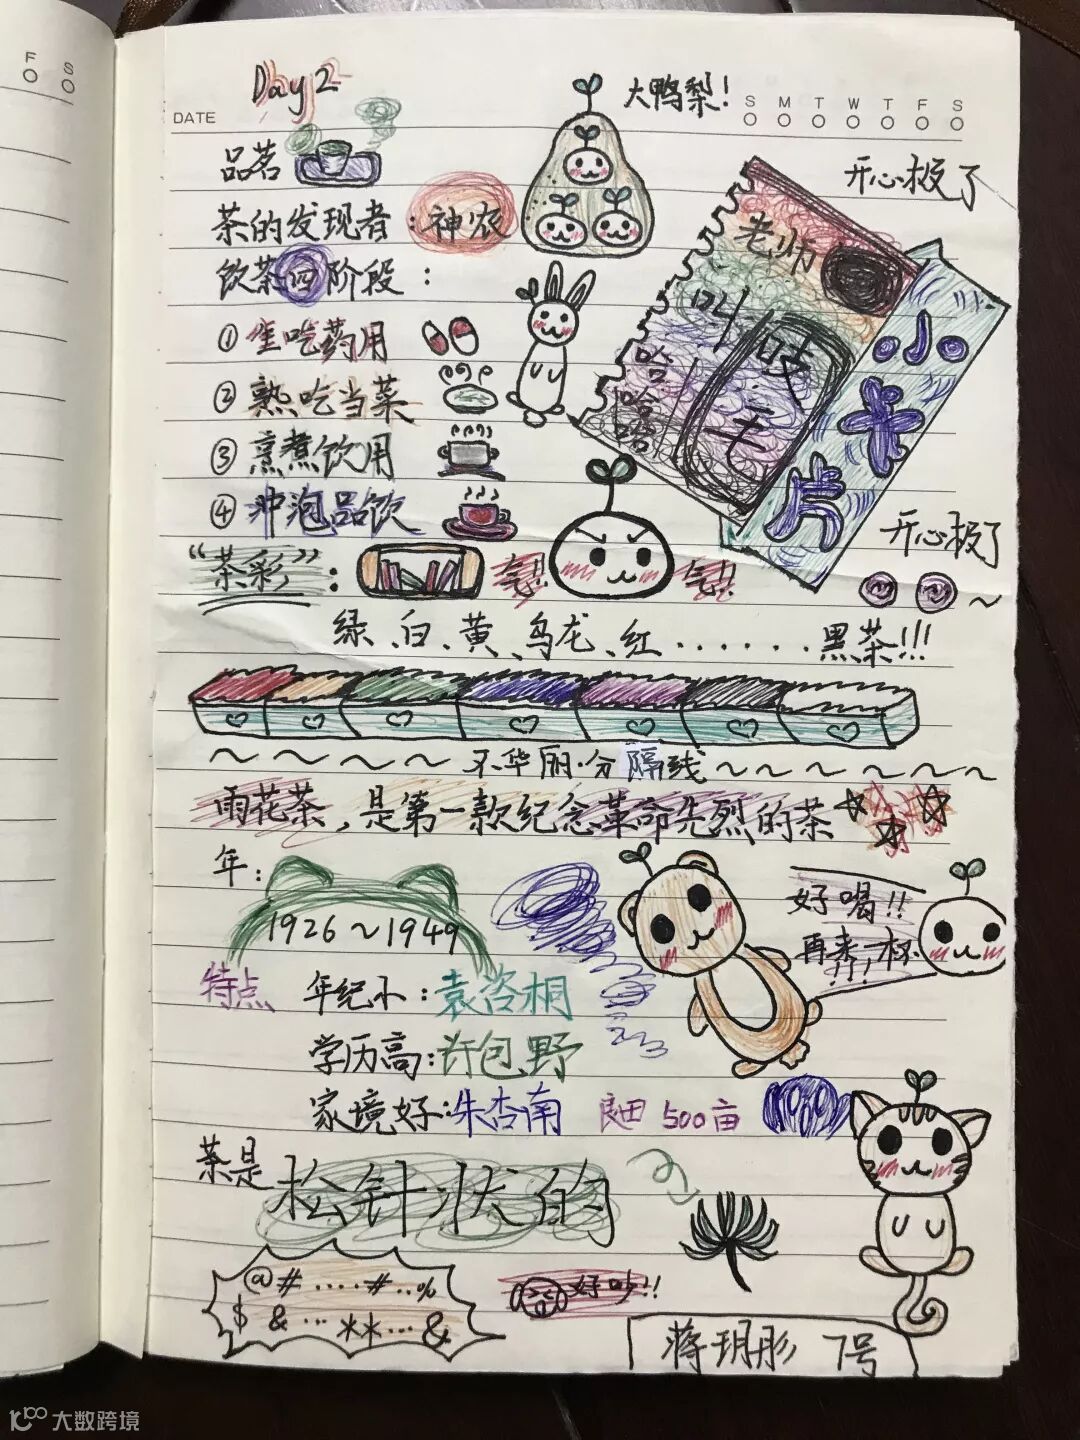 F S
Day 2
大鸭梨!
DATE
S M T W T F S
品茗
开心极了
茶的发现者:神农
老师
叫
吱毛
哈哈哈
小卡片
饮茶四阶段:
①生吃药用
②熟吃当菜
③烹煮饮用
④冲泡品饮
开心极了
“茶彩”:
气!! 气!!
~
绿、白、黄、乌龙、红......黑茶!!!
~~~~~~不华丽·分隔线~~~~~~~~
雨花茶,是第一款纪念革命先烈的茶
年:
1926~1949
好喝!!
再来一杯!!!
特点 年纪小:袁咨桐
学历高:许包野
家境好:朱杏南 良田500亩
茶是松针状的
@#....#..%
$ &...**...&
好吵!!
蒋玥彤 7号
大数跨境